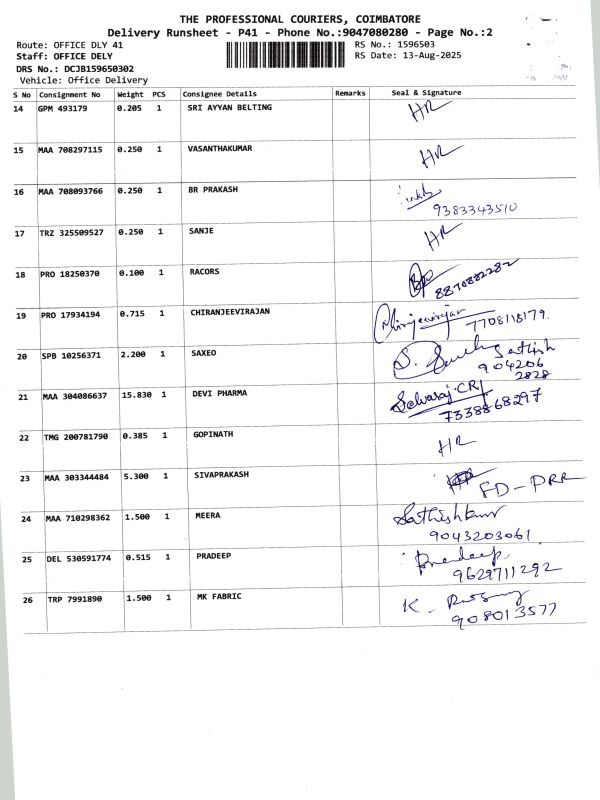 THE PROFESSIONAL COURIERS, COIMBATORE
Delivery Runsheet - P41 - Phone No.:9047080280 - Page No.:2
Route: OFFICE DLY 41 RS No.: 1596503
Staff: OFFICE DELY RS Date: 13-Aug-2025
DRS No.: DCJB159650302
Vehicle: Office Delivery
S No Consignment No Weight PCS Consignee Details Remarks Seal & Signature
14 GPM 493179 0.205 1 SRI AYYAN BELTING HR
15 MAA 708297115 0.250 1 VASANTHAKUMAR HR
16 MAA 708093766 0.250 1 BR PRAKASH
9383343510
17 TRZ 325509527 0.250 1 SANJE HR
18 PRO 18250370 0.100 1 RACORS
8870882282
19 PRO 17934194 0.715 1 CHIRANJEEVIRAJAN Chiranjeevirajan
7708118179.
20 SPB 10256371 2.200 1 SAXEO S. Sathish
904206
2828
21 MAA 304086637 15.830 1 DEVI PHARMA Selvaraj.CRJ
7338868297
22 TMG 200781790 0.385 1 GOPINATH HR
23 MAA 303344484 5.300 1 SIVAPRAKASH FD-PRR
24 MAA 710298362 1.500 1 MEERA Sathishkumar
9043203061.
25 DEL 530591774 0.515 1 PRADEEP Pradeep.
9629711292
26 TRP 7991890 1.500 1 MK FABRIC K.
908013577